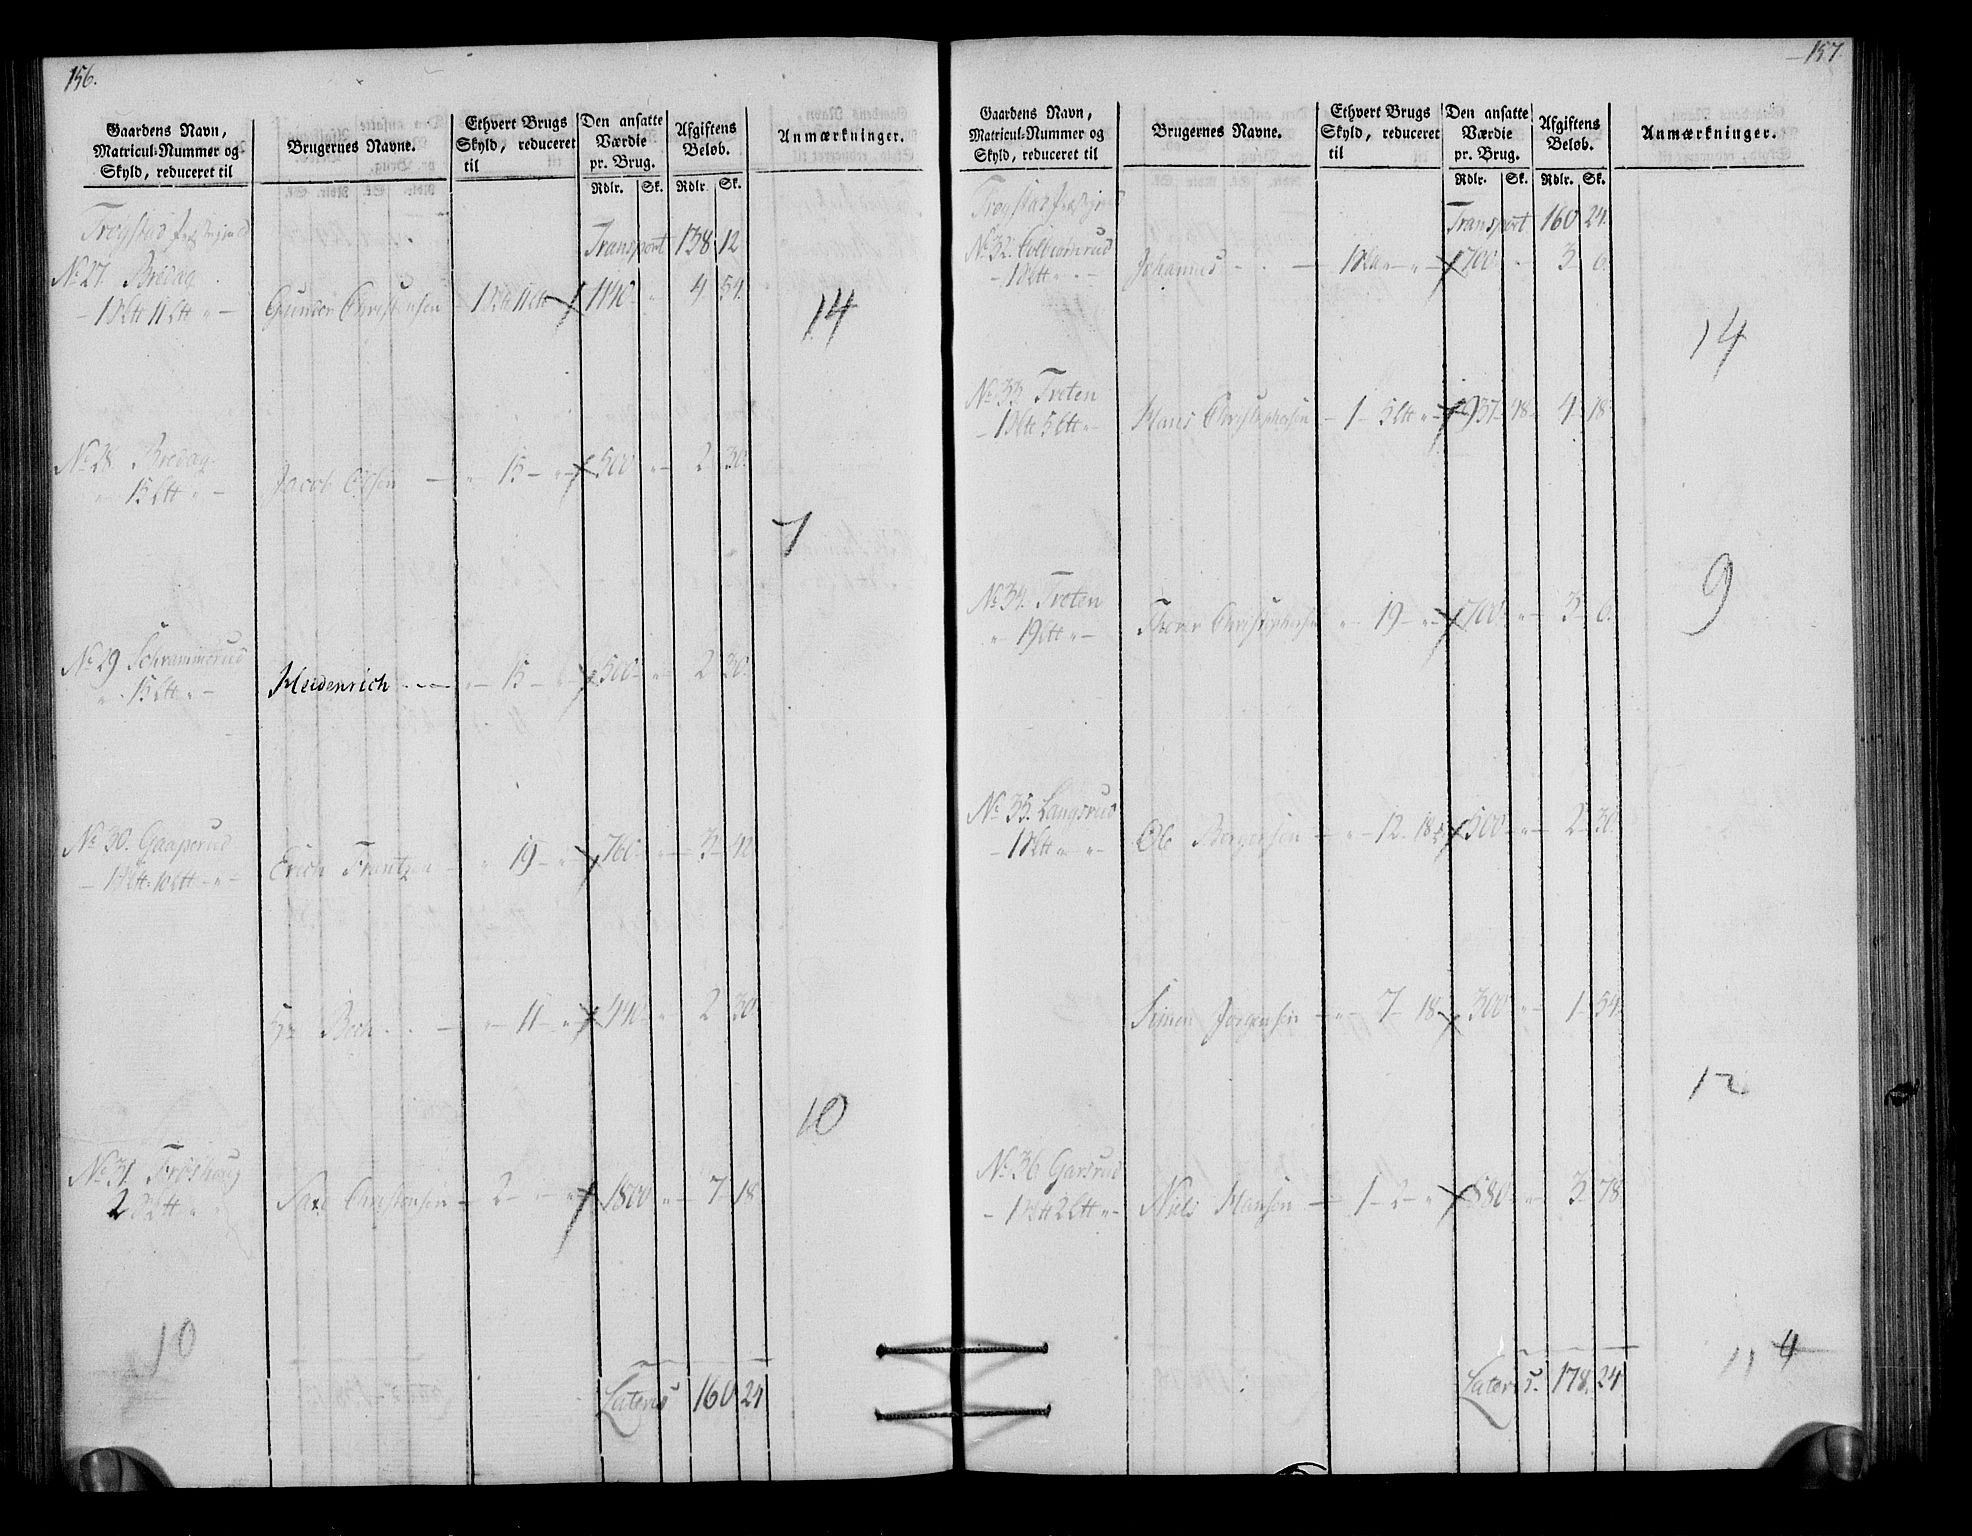 156.
Gaardens Navn, Matricul-Nummer og Skyld, reduceret til | Brugernes Navne. | Ethvert Brugs Skyld, reduceret til | Den ansatte Værdie pr. Brug. | Afgiftens Beløb. | Anmærkninger.
Rdlr. | Sk. | Rdlr. | Sk.
Transport 138 12
No 27 Bredag
– 1 Sktt 11 Ltt " – Gunder Christensen – 1 Sktt 11 Ltt – 1140 " 4 54.
14
No 28. Bredag
" 15 Ltt " – Jacob Olsen – " 15 – " – 500 " – 2 30.
7
No 29 Schrammerud
" 15 Ltt " – Heidenrich – " 15 – " – 500 " – 2 30.
No 30. Gaaperud
– 1 Sktt 10 Ltt " – Erich Frantzen – " 19 – " – 760 – 3 42
Hr Bech – " 11 – " – 440 " 2 30.
10
No 31. Frøshaug
2 Sktt " " Saxe Christensen – 2 – " – 1800 " – 7 – 18
10
Lateris 160 24
157.
Gaardens Navn, Matricul-Nummer og Skyld, reduceret til | Brugernes Navne. | Ethvert Brugs Skyld, reduceret til | Den ansatte Værdie pr. Brug. | Afgiftens Beløb. | Anmærkninger.
Rdlr. | Sk. | Rdlr. | Sk.
Transport 160 24.
No 32.
– 1 Sktt " – Johannes – 700 " 3 6.
14
No 33 Treten
– 1 Sktt 5 Ltt " – Hans Christophersen – 1 – 5 Ltt " – 937 – 48 – 4 – 18
No 34. Treten
" 19 Ltt " – Christophersen – " 19 – " – 700 " – 3 – 6.
9
No 35. Langsrud
– 1 Sktt " " – Ole Børgersen – " 12 – 18 – 500 " – 2 – 30.
Simen Jørgensen – " 7 – 18 – 300 " – 1 – 54.
12
No 36 Garsrud
– 1 Sktt 2 Ltt " – Niels Hansen – 1 – 2 – " – 880 " – 3 78
11 4
Lateris. 178. 24